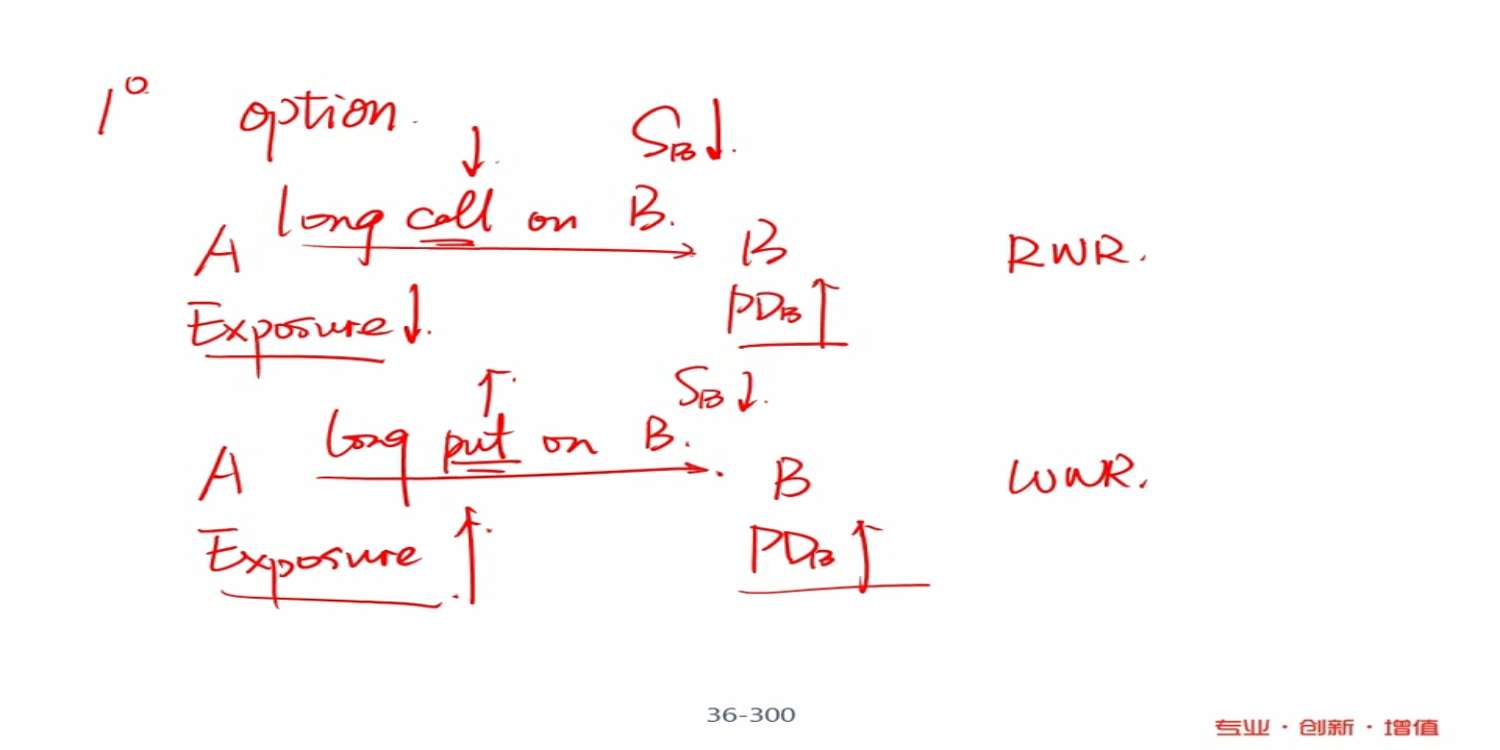 1° option.
↓ S_B ↓.
long call on B.
A → B RWR.
Exposure ↓. PD_B ↑
↑. S_B ↓.
long put on B.
A → B WWR.
Exposure ↑. PD_B ↑
36-300
专业·创新·增值